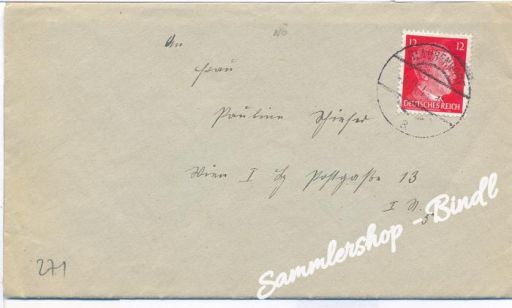 An
Frau
Pauline
Wien I Postgasse 13
I
5
271
12 12
DEUTSCHES REICH
8
Sammlershop - Bindl